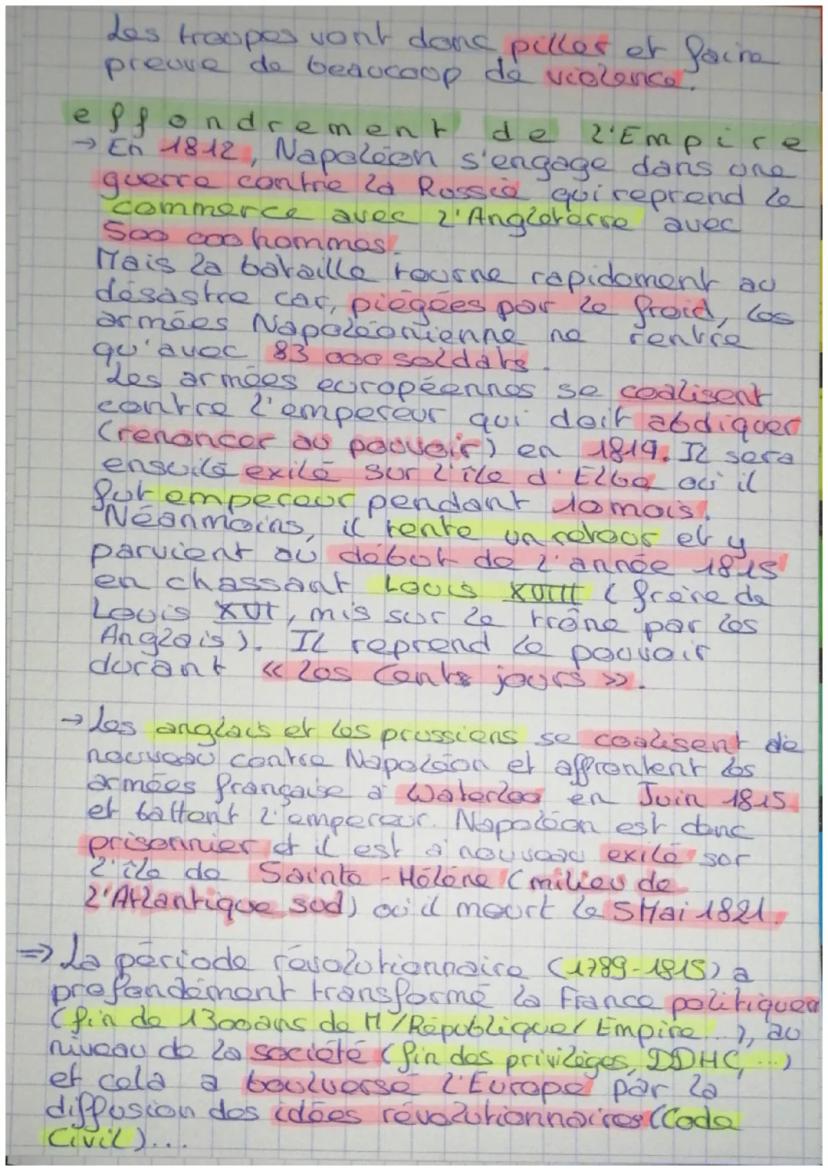 Les troupes vont donc piller et faire
preuve de beaucoup de violence.
effondrement de l'Empire
→ En 1812, Napoléon s'engage dans une
guerre contre la Russie qui reprend le
commerce avec l'Angleterre avec
500 000 hommes.
Mais la bataille tourne rapidement au
désastre car, piégées par le froid, les
armées Napoléonienne ne rentre
qu'avec 83 000 soldats.
Les armées européennes se coalisent
contre l'empereur qui doit abdiquer
(renoncer au pouvoir) en 1819. Il sera
ensuite exilé sur l'île d'Elbe où il
fut empereur pendant 10 mois.
Néanmoins, il tente un retour et y
parvient au début de l'année 1815
en chassant Louis XVIII (frère de
Louis XVI, mis sur le trône par les
Anglais). Il reprend le pouvoir
durant « les Cents jours ».
→ Les anglais et les prussiens se coalisent de
nouveau contre Napoléon et affrontent les
armées française à Waterloo en Juin 1815
et battent l'empereur. Napoléon est donc
prisonnier et il est à nouveau exilé sur
l'île de Sainte-Hélène (milieu de
l'Atlantique sud) où il meurt le 5 Mai 1821.
⇒ La période révolutionnaire (1789-1815) a
profondément transformé la France politique
(fin de 1300 ans de M/République/Empire...), au
niveau de la société (fin des privilèges, DDHC, ...)
et cela a boulversé l'Europe par la
diffusion des idées révolutionnaires (Code
Civil)...